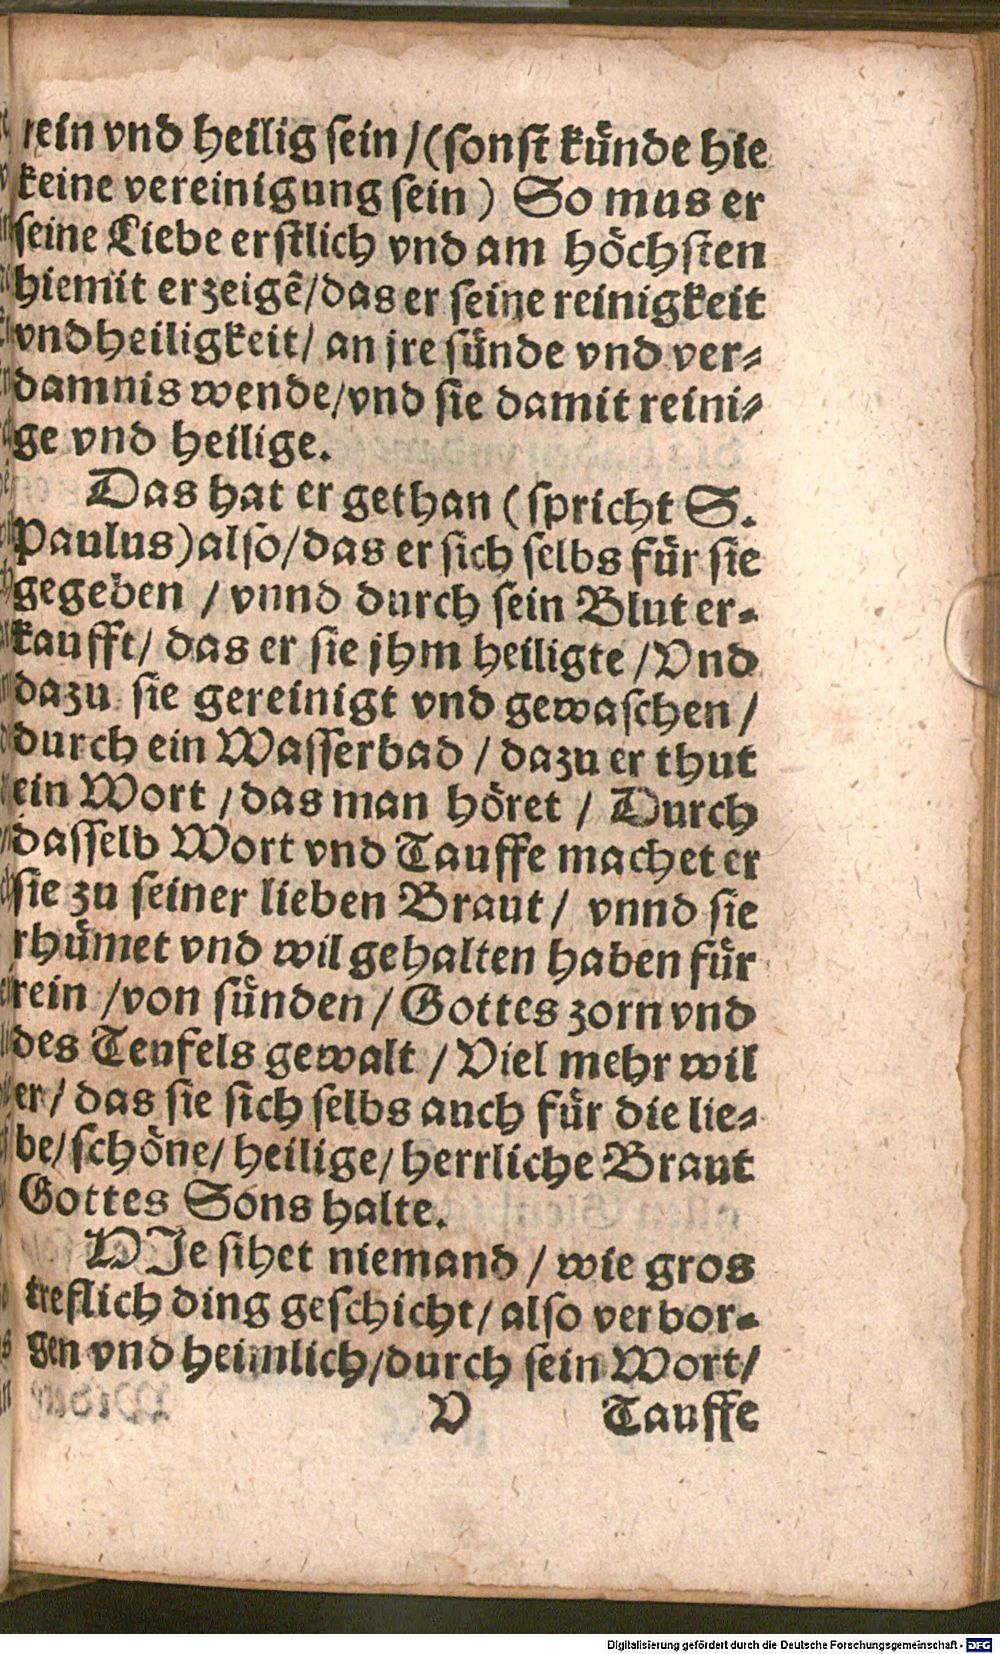 rein vnd heilig sein / (sonst künde hie
keine vereinigung sein) So mus er
seine Liebe erstlich vnd am höchsten
hiemit erzeigē/das er seine reinigkeit
vnd heiligkeit/ an jre sünde vnd ver⸗
damnis wende/vnd sie damit reini⸗
ge vnd heilige.
Das hat er gethan (spricht S.
Paulus) also/das er sich selbs für sie
gegeben / vnnd durch sein Blut er⸗
kaufft/ das er sie jhm heiligte /Vnd
dazu sie gereinigt vnd gewaschen /
durch ein Wasserbad / dazu er thut
ein Wort /das man höret / Durch
dasselb Wort vnd Tauffe machet er
sie zu seiner lieben Braut / vnnd sie
rhümet vnd wil gehalten haben für
rein /von sünden/ Gottes zorn vnd
des Teufels gewalt /Viel mehr wil
er/ das sie sich selbs auch für die lie⸗
be/schöne/ heilige/ herrliche Braut
Gottes Sons halte.
DIe sihet niemand / wie gros
treflich ding geschicht/ also verbor⸗
gen vnd heimlich/durch sein Wort/
V Tauffe
Digitalisierung gefördert durch die Deutsche Forschungsgemeinschaft - DFG